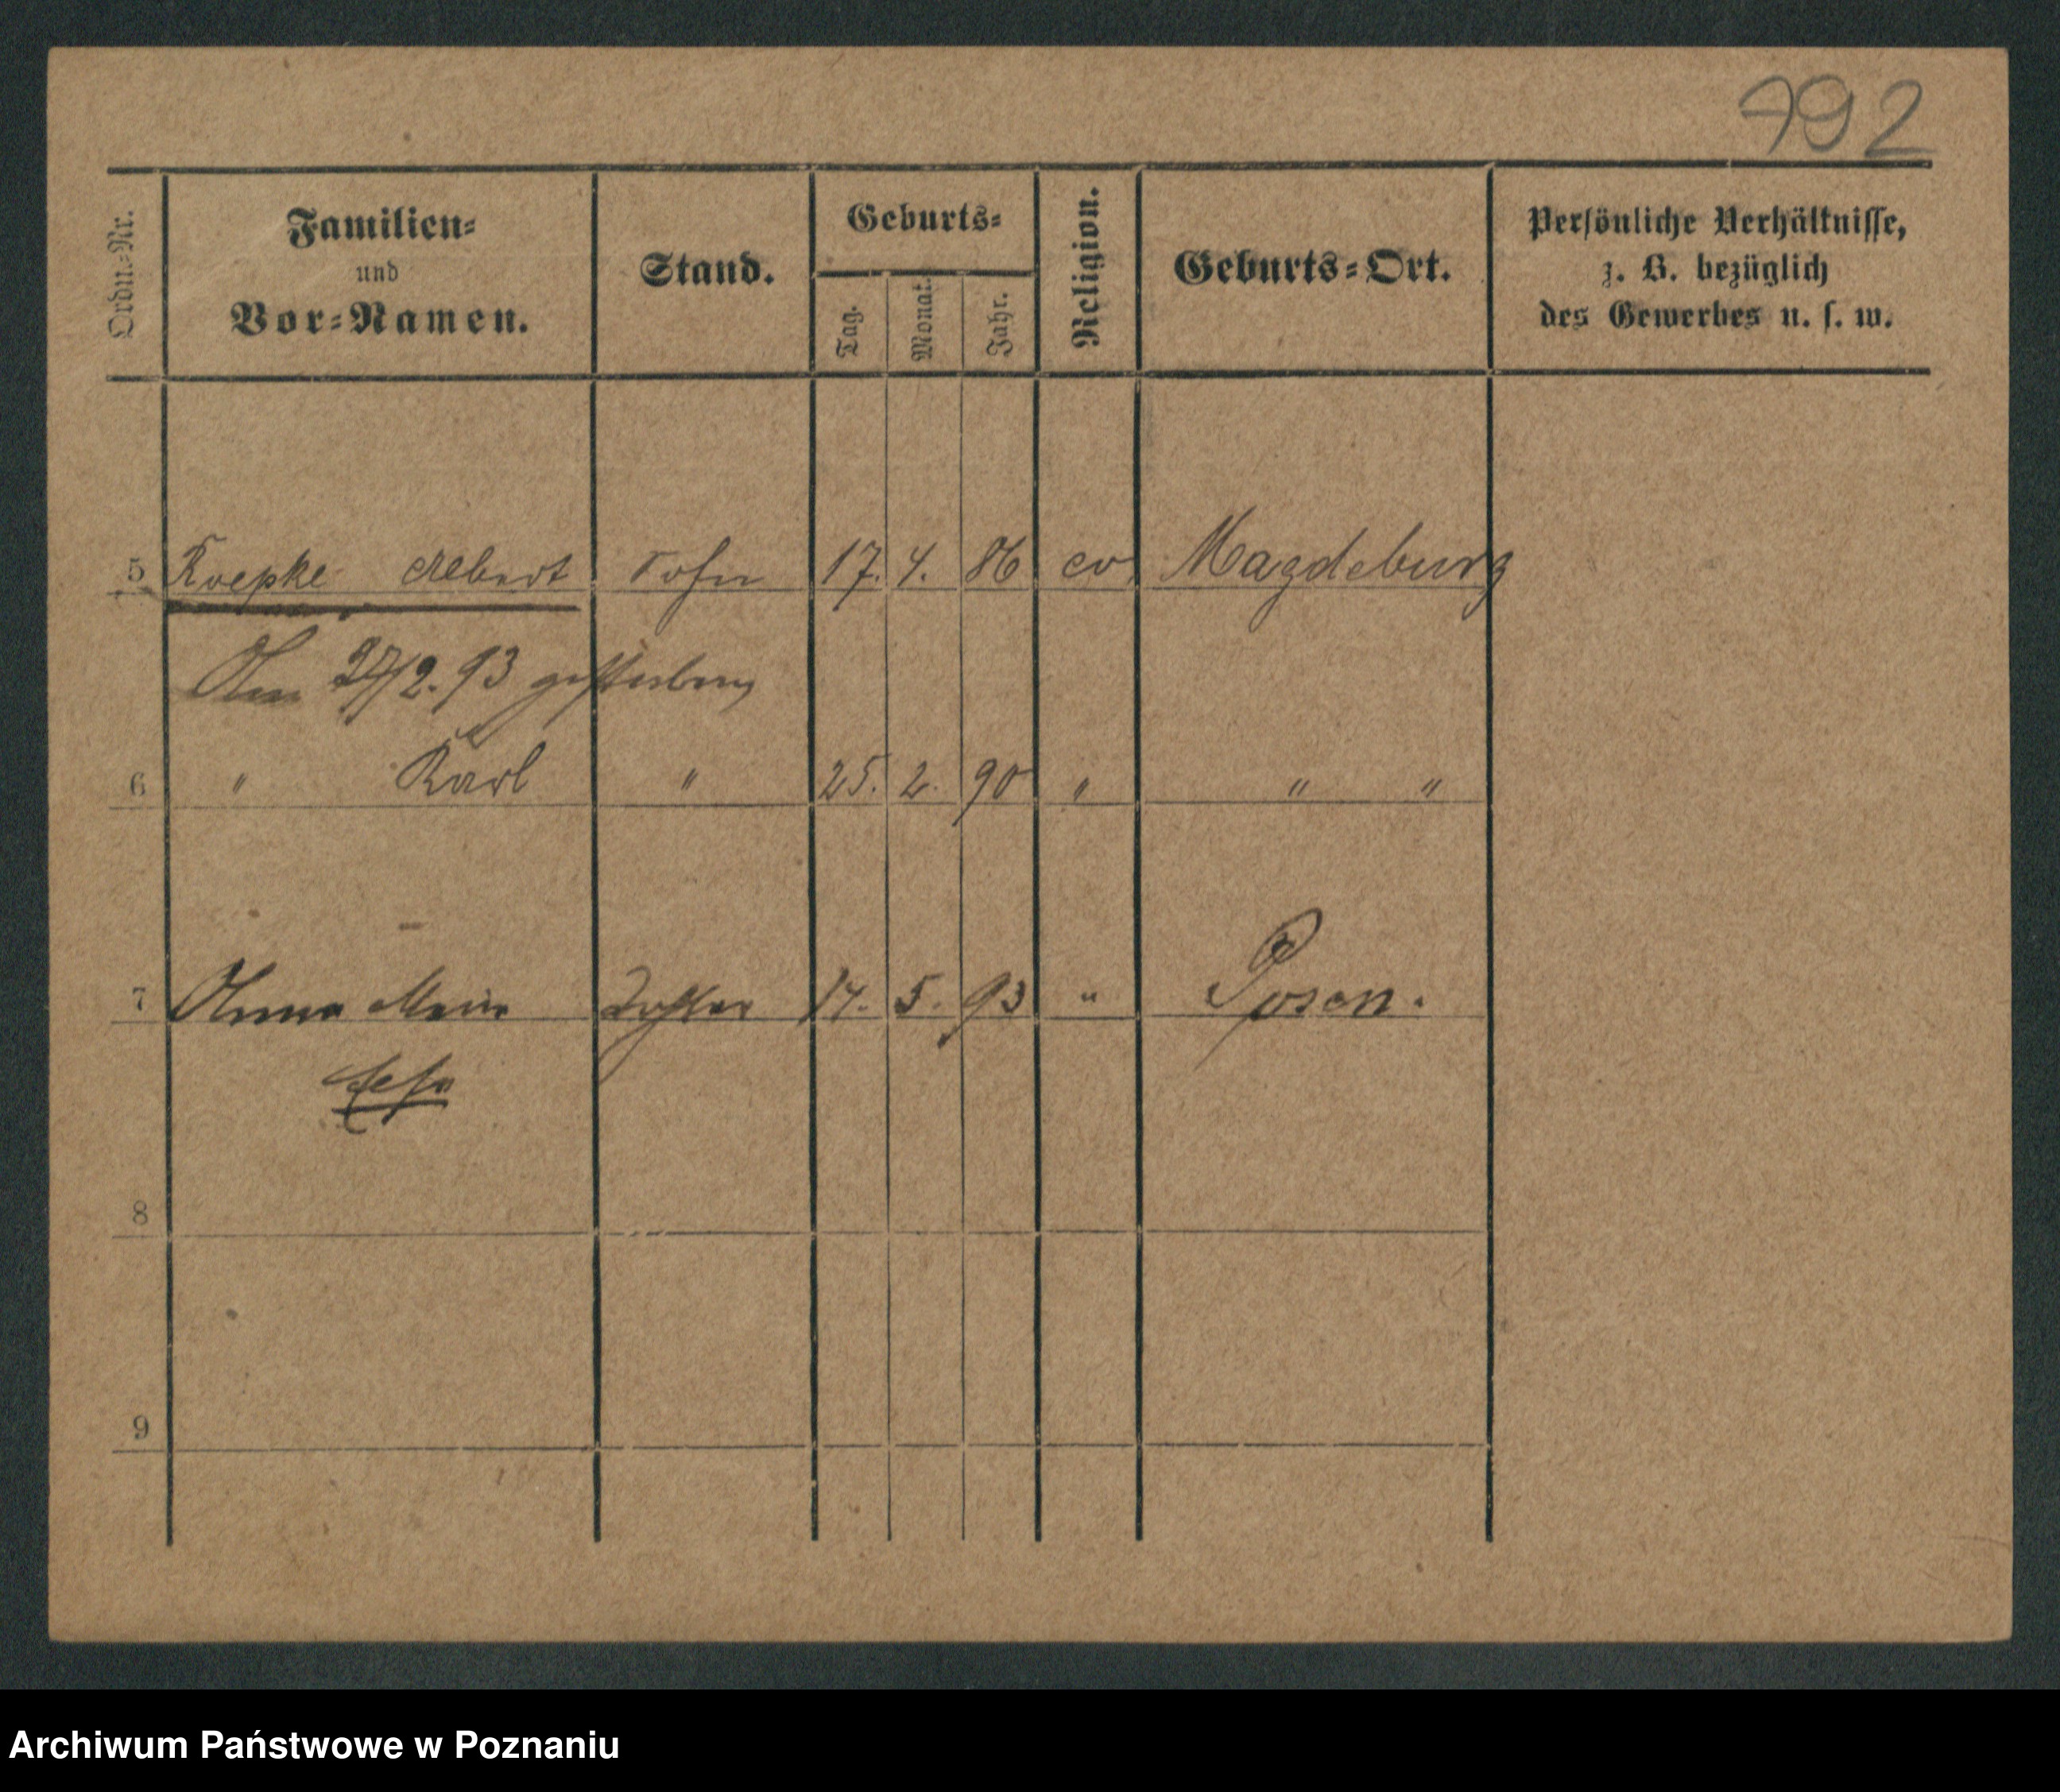 792
Ordn.-Nr.
Familien-
und
Vor-Namen.
Stand.
Geburts-
Tag.
Monat.
Jahr.
Religion.
Geburts-Ort.
Persönliche Verhältnisse,
z. B. bezüglich
des Gewerbes u. s. w.
5 Koepke Albert Sohn 17. 4. 86 ev Magdeburg
Am 27/2. 93 gestorben
6 " Karl " 25. 2. 90 " " "
7 Anna Marie Tochter 14. 5. 93 " Posen.
8
9
Archiwum Państwowe w Poznaniu